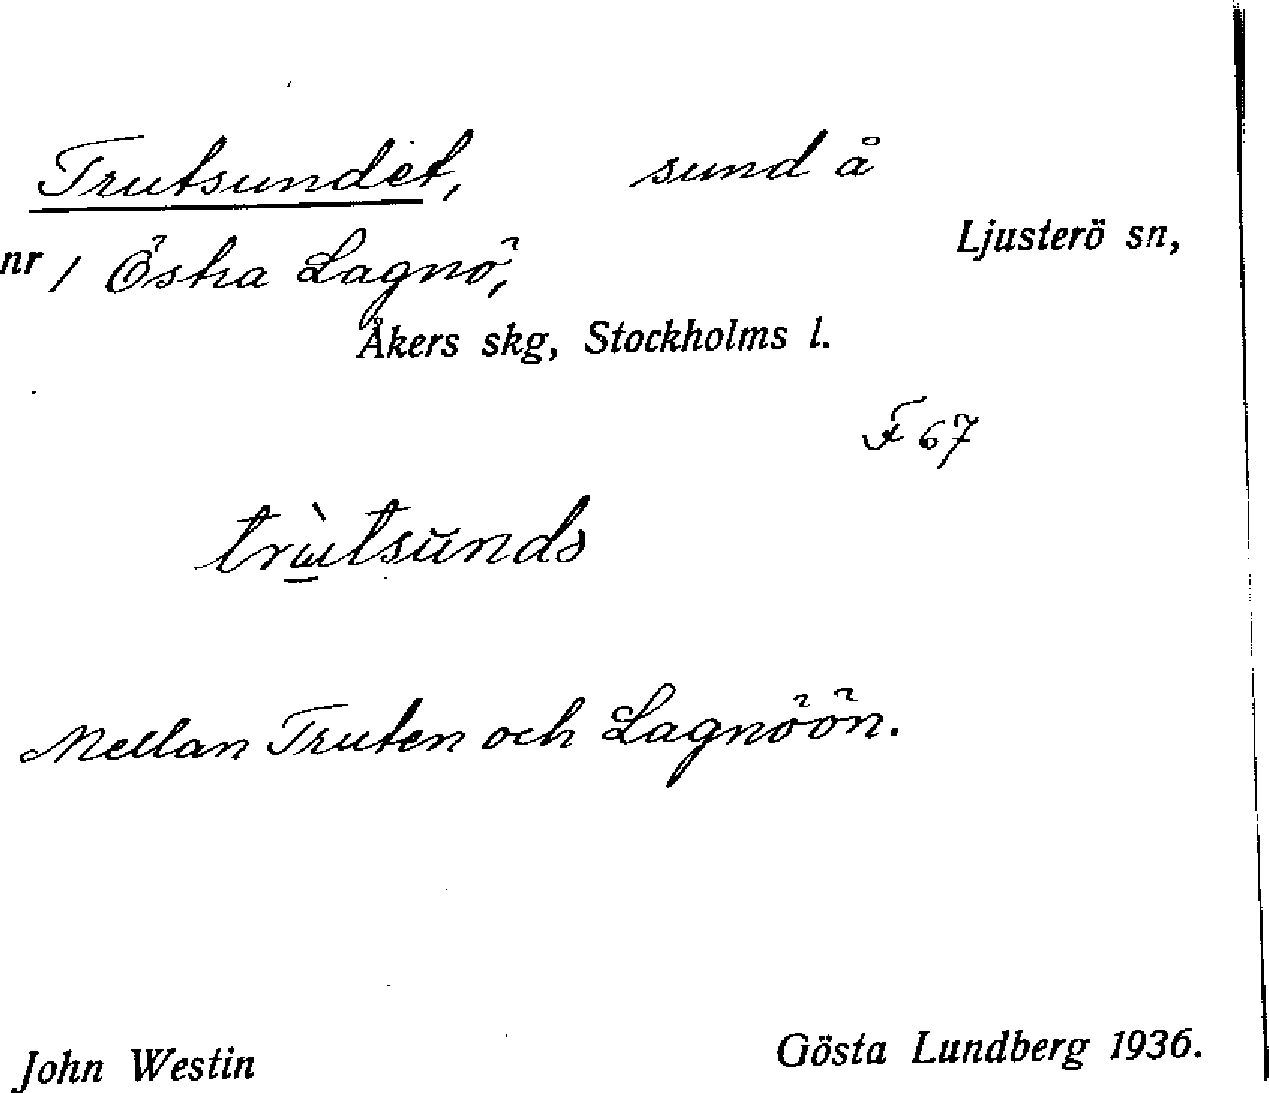 Trutsundet, sund å
Ljusterö sn,
nr 1 Östra Lagnö,
Åkers skg, Stockholms l.
F 67
Mellan Truten och Lagnöön.
John Westin Gösta Lundberg 1936.